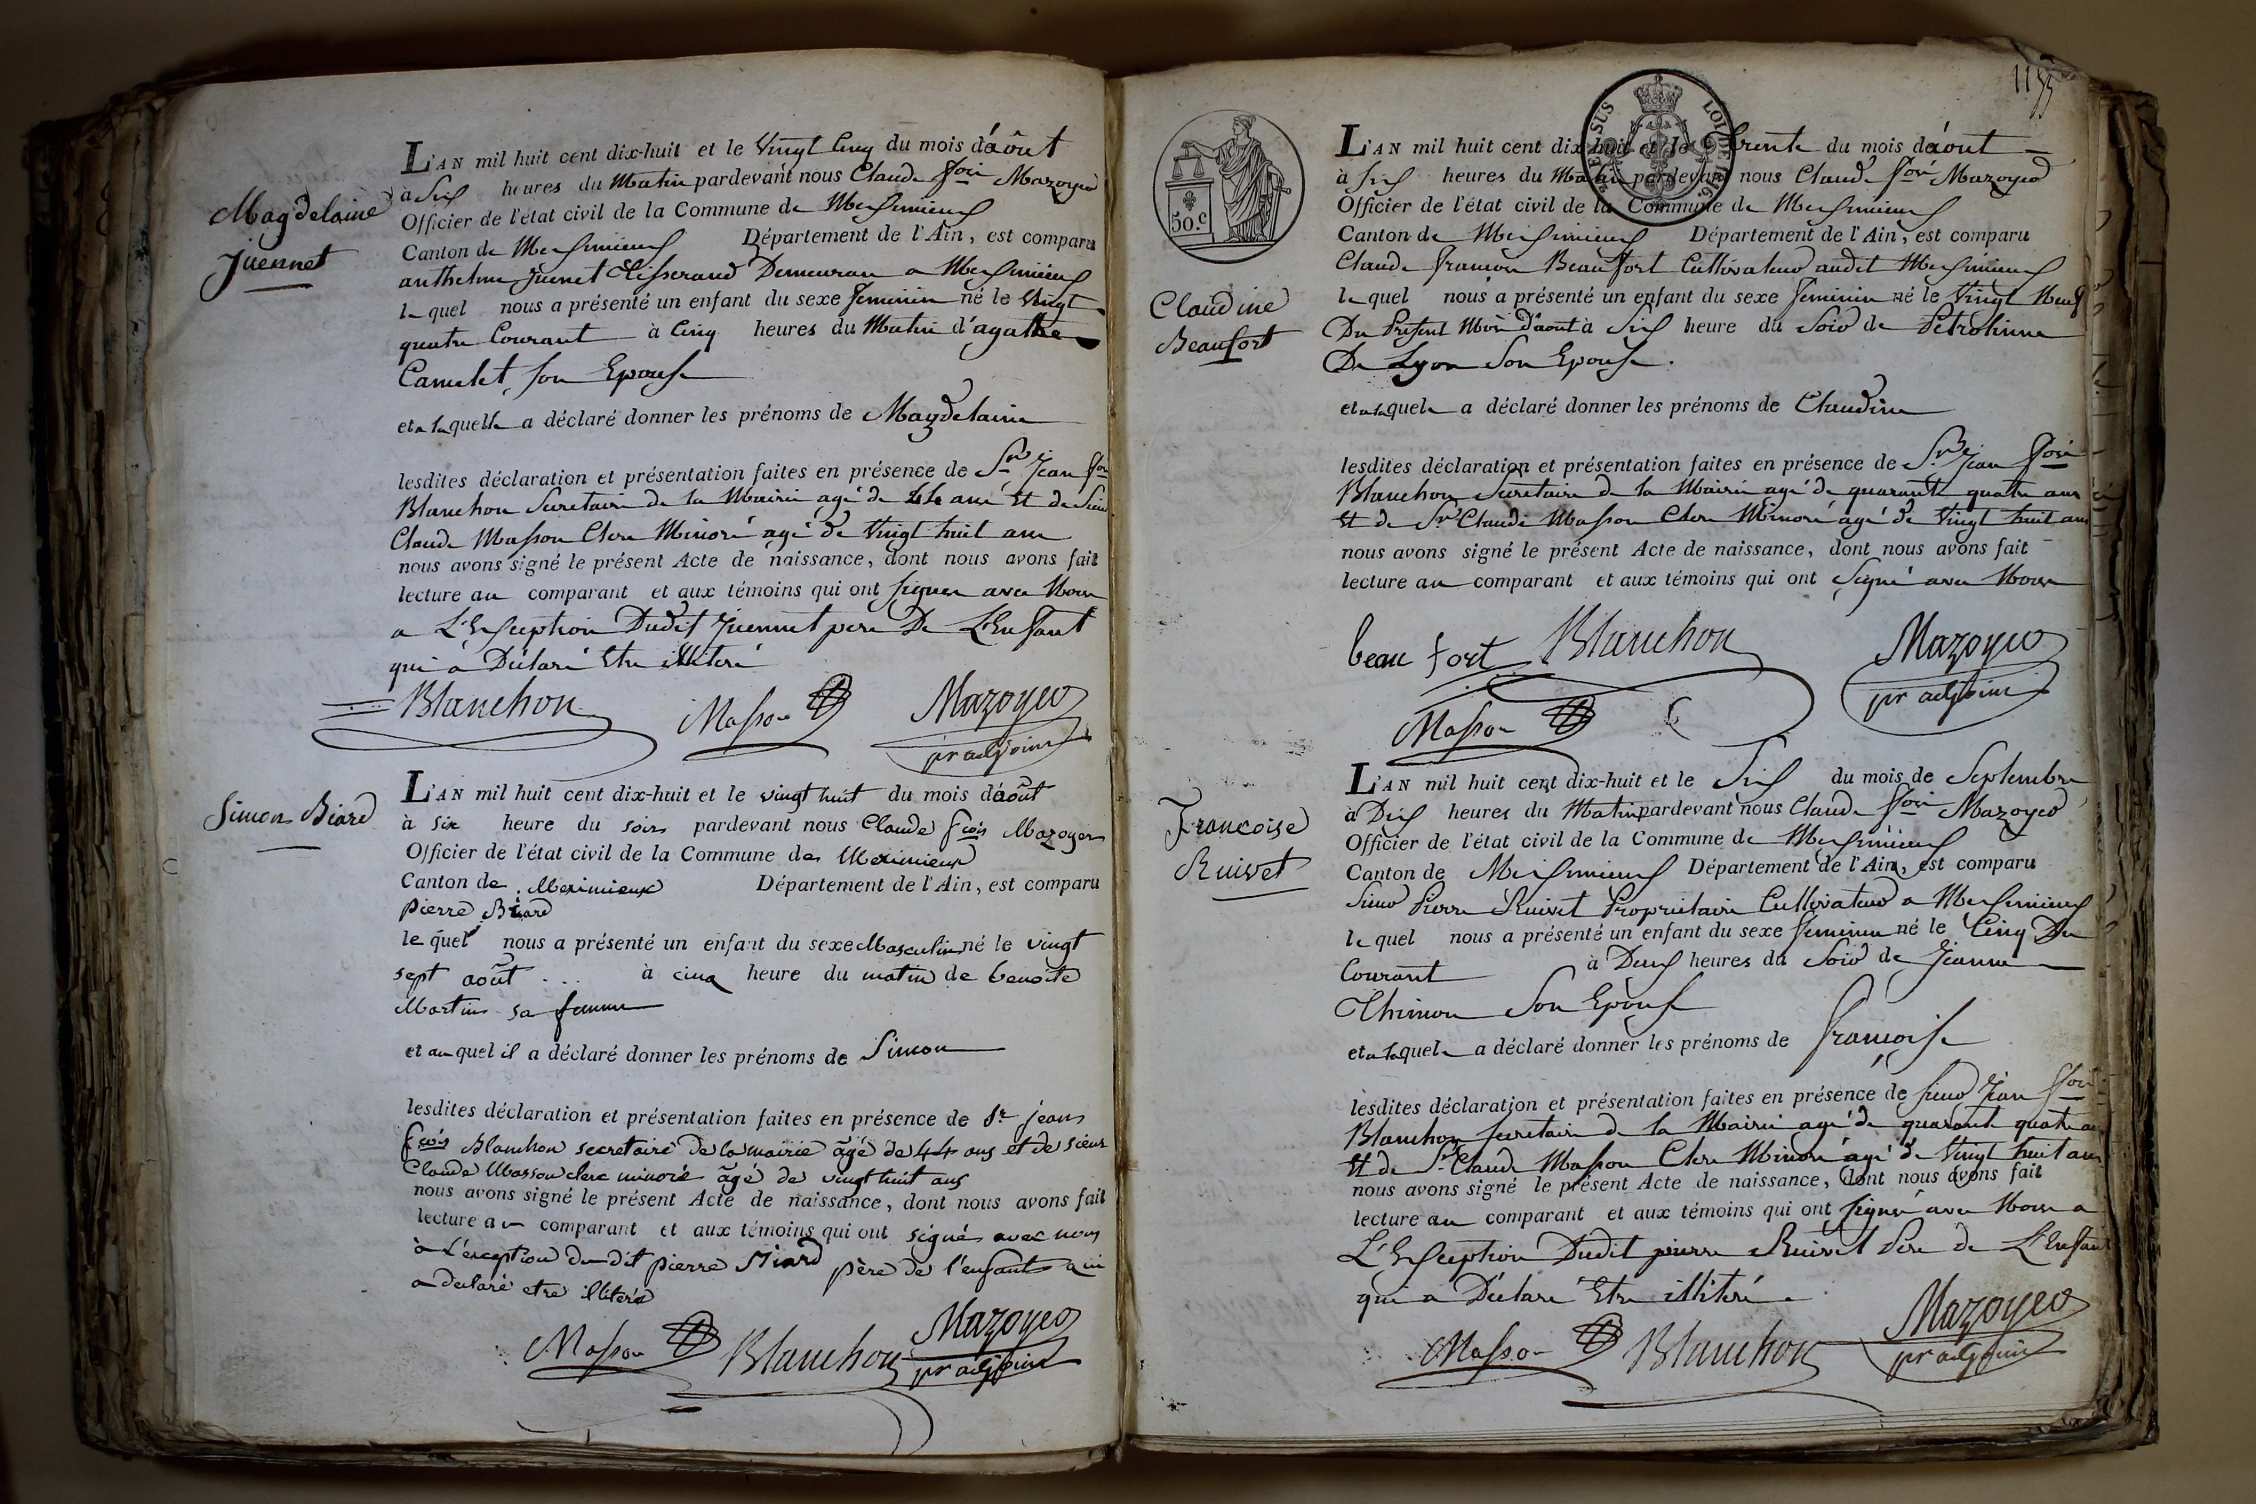 Magdelaine
Juennet
L'AN mil huit cent dix-huit et le Vingt Cinq du mois d'août
à Six heures du Matin pardevant nous Claude fçois Mazoyer
Officier de l'état civil de la Commune de Meximieux
Canton de Meximieux Département de l'Ain, est comparu
anthelme Juenet Tisserand Demeurant a Meximieux
le quel nous a présenté un enfant du sexe feminin né le Vingt
quatre Courant à Cinq heures du Matin d'agathe
Camelet son Epouse
et a laquelle a déclaré donner les prénoms de Magdelaine
lesdites déclaration et présentation faites en présence de Sr Jean fçois
Blanchon Secretaire de la Mairie agé de 44 ans Et de Sieur
Claude Masson Clerc Minoré agé de Vingt huit ans
nous avons signé le présent Acte de naissance, dont nous avons fait
lecture au comparant et aux témoins qui ont signer avec Nous
a L'Exception Dudit Juennet pere De L'Enfant
qui a Déclaré Etre illiteré
Blanchon Masson Mazoyer
pr adjoint
Simon Biard
L'AN mil huit cent dix-huit et le vingt huit du mois d'août
à six heure du soir pardevant nous Claude fçois Mazoyer
Officier de l'état civil de la Commune de Meximieux
Canton de Meximieux Département de l'Ain, est comparu
Pierre Biard
le quel nous a présenté un enfant du sexe Masculin né le vingt
sept août ... à cinq heure du matin de benoite
Martin sa femme
et au quel il a déclaré donner les prénoms de Simon
lesdites déclaration et présentation faites en présence de Sr jean
fçois Blanchon secretaire de la mairie âgé de 44 ans et de sieur
Claude Masson clerc minoré âgé de vingt huit ans
nous avons signé le présent Acte de naissance, dont nous avons fait
lecture au comparant et aux témoins qui ont signés avec nous
à l'exception du dit pierre Biard père de l'enfant qui
a declaré etre illiteré
Masson Blanchon Mazoyer
pr adjoint
1155
50.c
LOI DE 1816
Claudine
Beaufort
L'AN mil huit cent dix-huit et le trente du mois d'août
à six heures du Matin pardevant nous Claude fçois Mazoyer
Officier de l'état civil de la Commune de Meximieux
Canton de Meximieux Département de l'Ain, est comparu
Claude françois Beaufort Cultivateur audit Meximieux
le quel nous a présenté un enfant du sexe feminin né le Vingt Neuf
Du Présent Mois D'aout à Six heure du Soir de Pétroline
De Lyon Son Epouse.
et a laquele a déclaré donner les prénoms de Claudine
lesdites déclaration et présentation faites en présence de Sr Jean fçois
Blanchon Secretaire de la Mairie agé de quarante quatre ans
Et de Sr Claude Masson Clerc Minoré agé de Vingt huit ans
nous avons signé le présent Acte de naissance, dont nous avons fait
lecture au comparant et aux témoins qui ont Signé avec Nous
beau fort Blanchon Mazoyer
pr adjoint
Masson
Francoise
Ruivet
L'AN mil huit cent dix-huit et le Six du mois de Septembre
à Dix heures du Matin pardevant nous Claude fçois Mazoyer
Officier de l'état civil de la Commune de Meximieux
Canton de Meximieux Département de l'Ain, est comparu
Sieur Pierre Ruivet Propriétaire Cultivateur a Meximieux
le quel nous a présenté un enfant du sexe feminin né le Cinq Du
Courant à Deux heures du Soir de Jeanne
Thimon Son Epouse
et a laquele a déclaré donner les prénoms de françoise
lesdites déclaration et présentation faites en présence de Sieur Jean fçois
Blanchon Secretaire de la Mairie agé de quarante quatre ans
Et de Sr Claude Masson Clerc Minoré agé de Vingt huit ans
nous avons signé le présent Acte de naissance, dont nous avons fait
lecture au comparant et aux témoins qui ont signé avec Nous a
L'Exception Dudit pierre Ruivet Pere de L'Enfant
qui a Déclaré Etre illiteré.
Masson Blanchon Mazoyer
pr adjoint